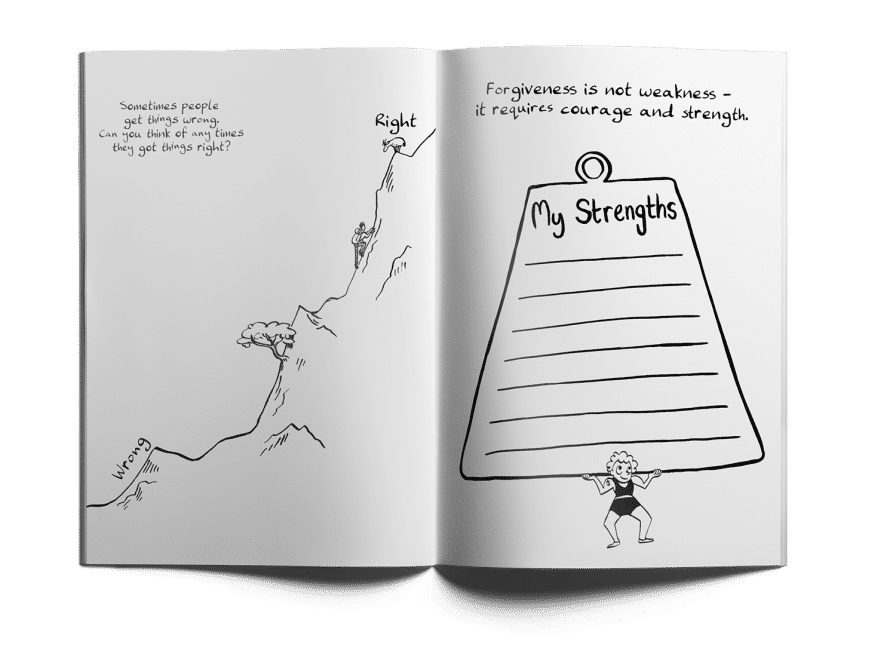 Sometimes people
get things wrong.
Can you think of any times
they got things right?
Right
Wrong
Forgiveness is not weakness –
it requires courage and strength.
My Strengths